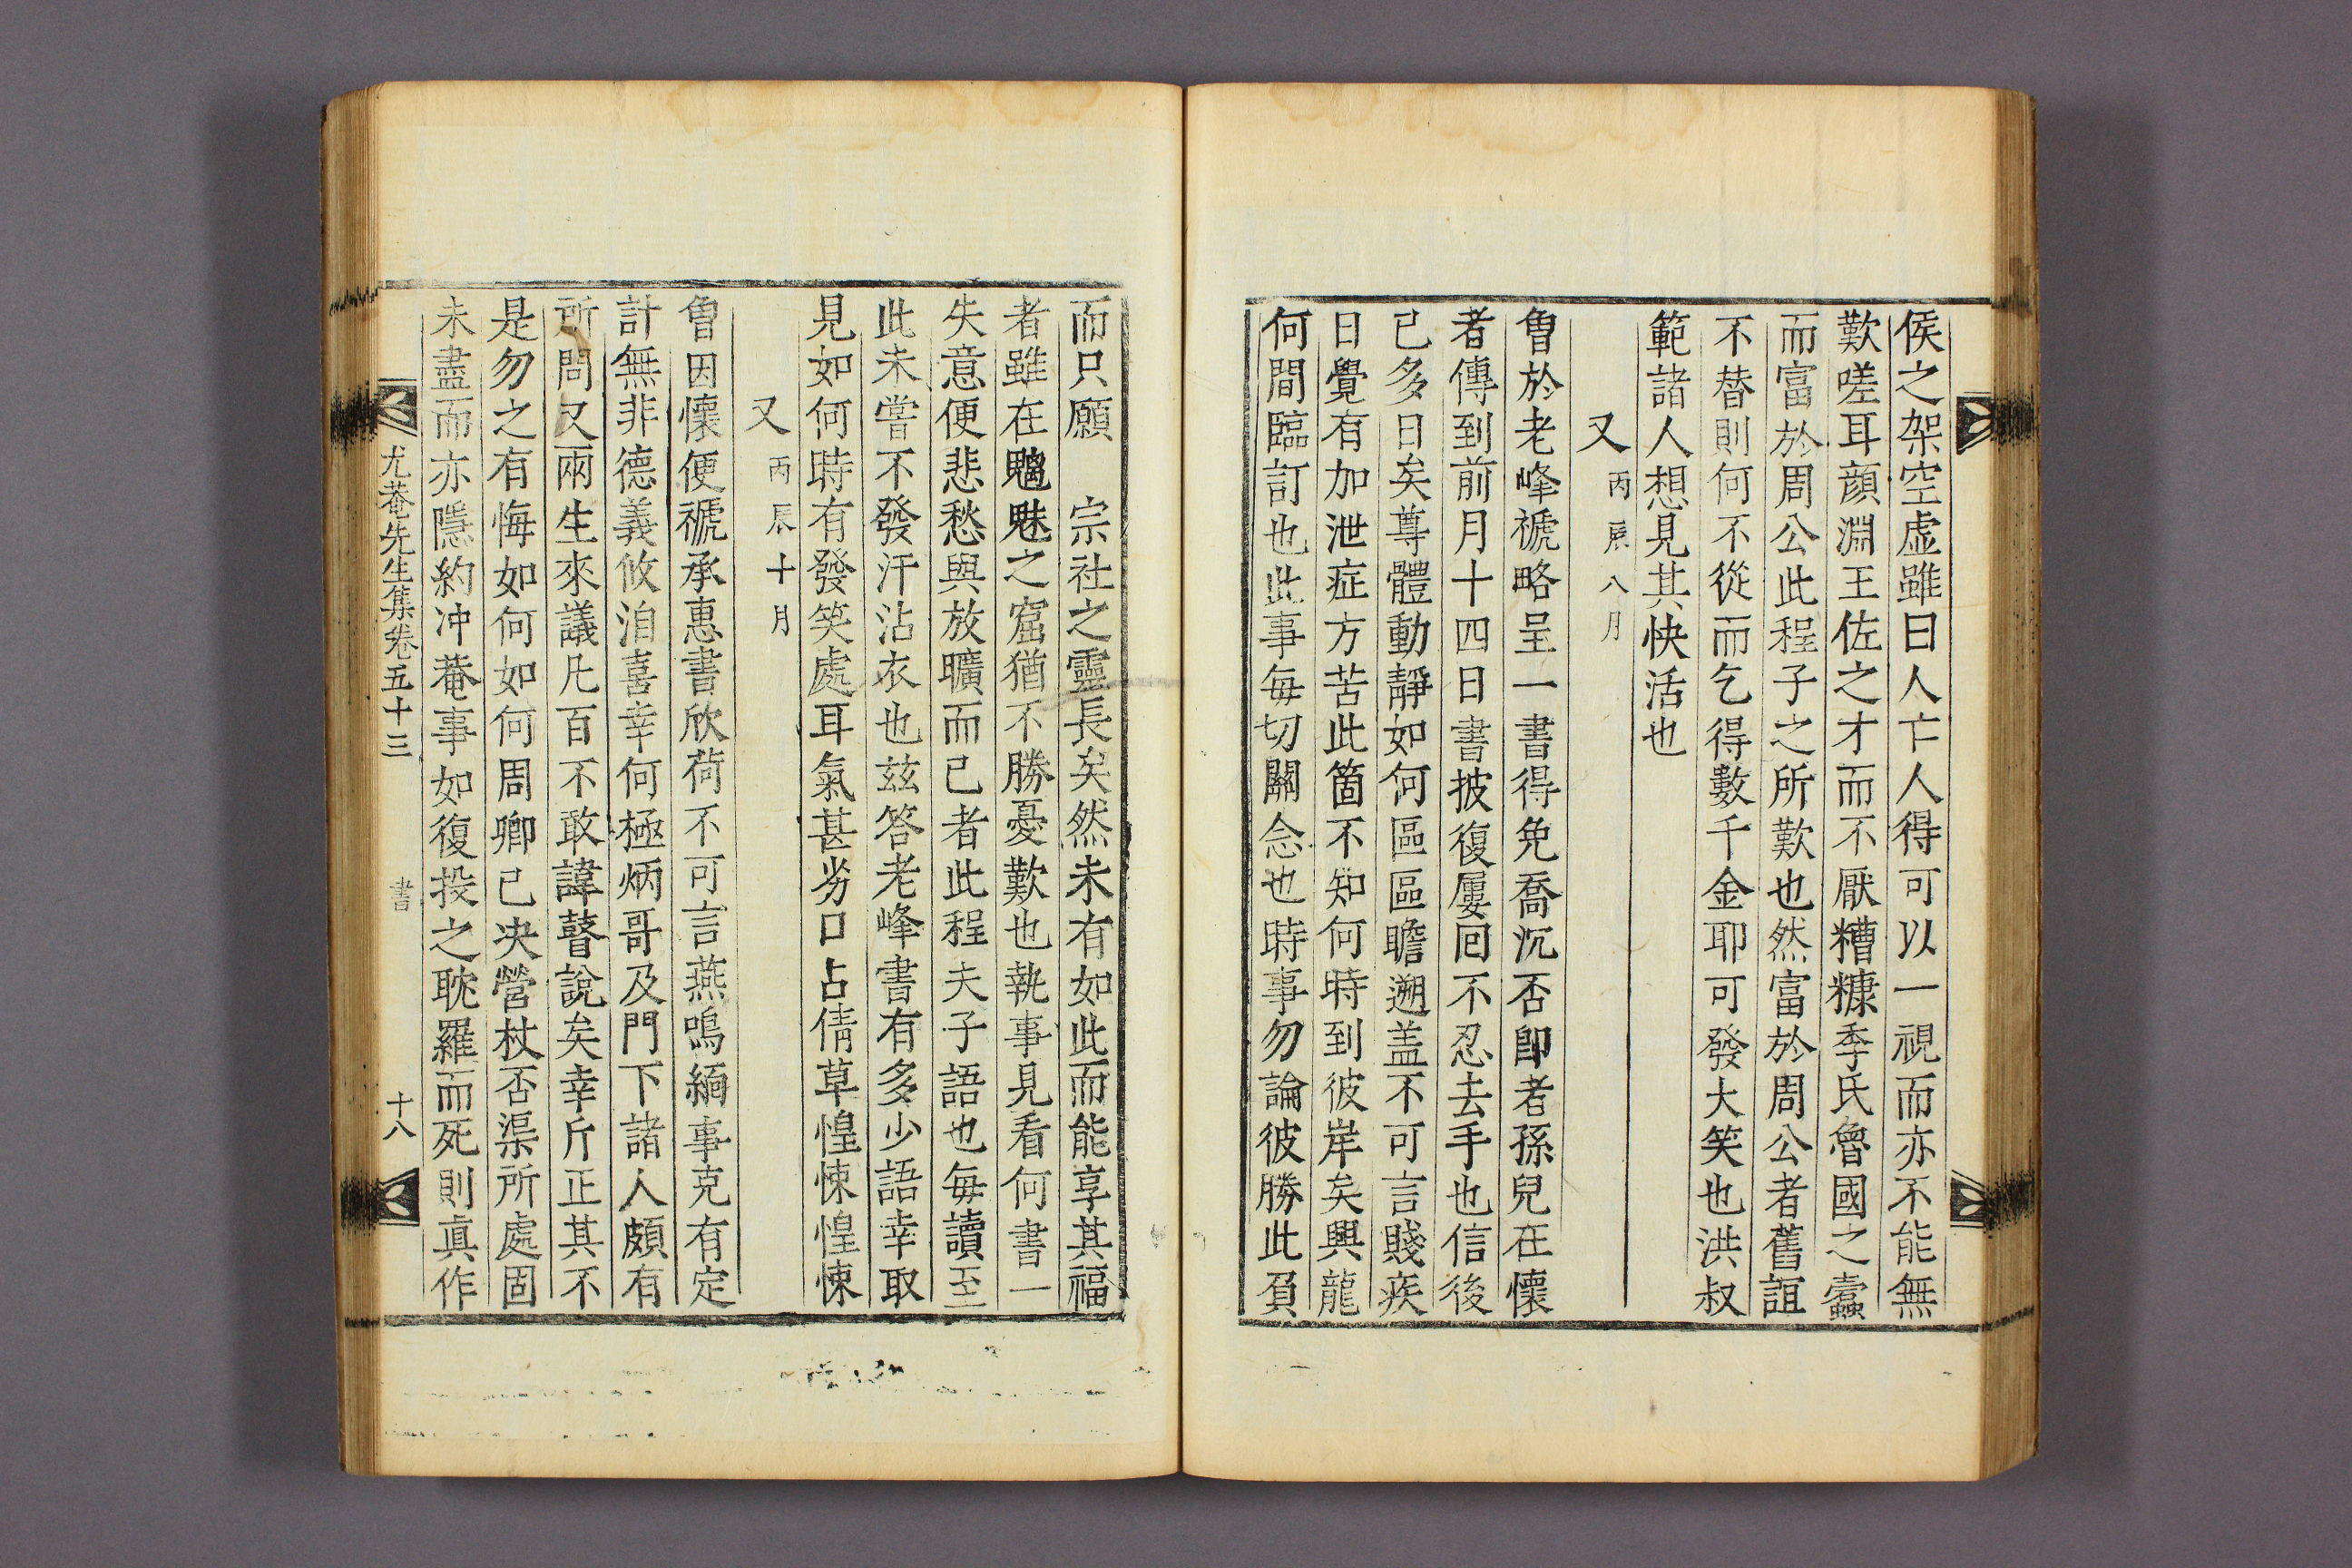 侯之架空虛雖曰人亡人得可以一視而亦不能無
歎嗟耳顔淵王佐之才而不厭糟糠季氏魯國之蠹
而富於周公此程子之所歎也然富於周公者舊誼
不替則何不從而乞得數千金耶可發大笑也洪叔
範諸人想見其快活也
又 丙辰八月
曾於老峰褫略呈一書得免喬沉否卽者孫兒在懷
者傳到前月十四日書披復屢回不忍去手也信後
已多日矣尊體動靜如何區區瞻遡盖不可言賤疾
日覺有加泄症方苦此箇不知何時到彼岸矣興龍
何間臨訂也此事每切關念也時事勿論彼勝此負
而只願 宗社之靈長矣然未有如此而能享其福
者雖在魑魅之窟猶不勝憂歎也執事見看何書一
失意便悲愁與放曠而已者此程夫子語也每讀至
此未嘗不發汗沾衣也玆答老峰書有多少語幸取
見如何時有發笑處耳氣甚劣口占倩草惶悚惶悚
又 丙辰十月
曾因懷便褫承惠書欣荷不可言燕鳴緬事克有定
計無非德義攸洎喜幸何極炳哥及門下諸人頗有
所問又兩生來議凡百不敢諱瞽說矣幸斤正其不
是勿之有悔如何如何周卿已决營杖否渠所處固
未盡而亦隱約冲菴事如復投之耽羅而死則眞作
尤菴先生集卷五十三 書 十八